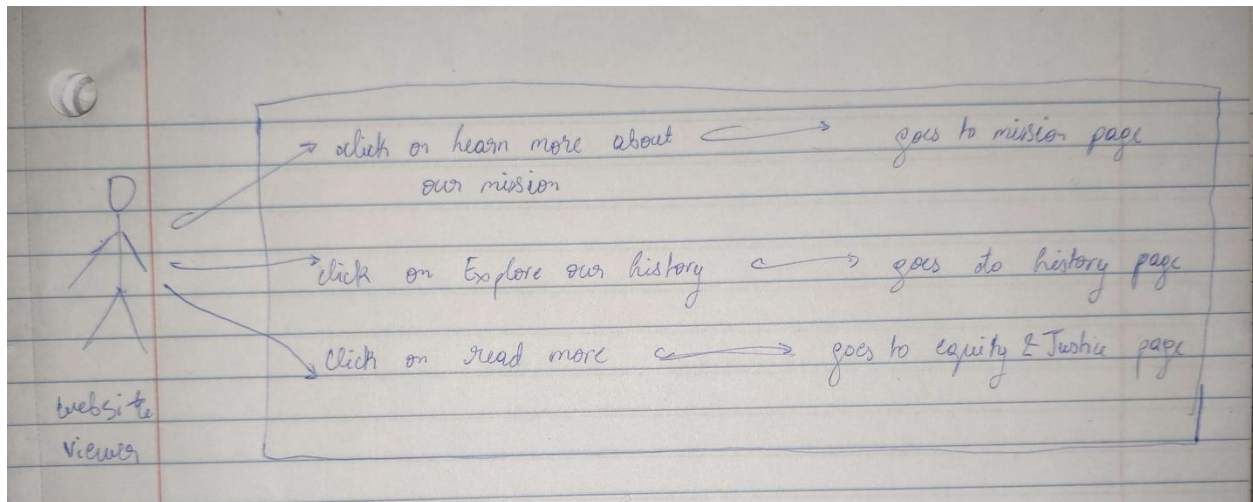 click on learn more about goes to mission page
our mission
click on Explore our history goes to history page
click on read more goes to equity & Justice page
website
viewer